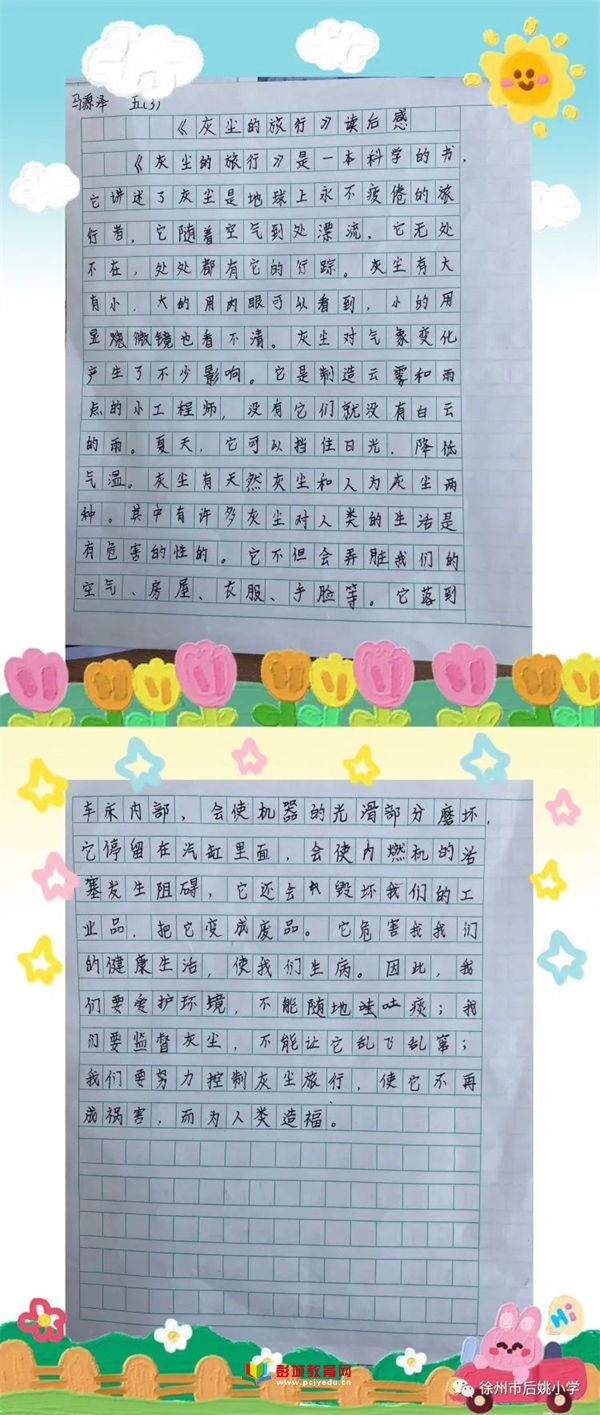 马源泽 五(3)
《灰尘的旅行》读后感
《灰尘的旅行》是一本科学的书,
它讲述了灰尘是地球上永不疲倦的旅
行者,它随着空气到处漂流,它无处
不在,处处都有它的行踪。灰尘有大
有小,大的用肉眼可以看到,小的用
显微镜也看不清。灰尘对气象变化
产生了不少影响。它是制造云雾和雨
点的小工程师,没有它们就没有白云
的雨。夏天,它可以挡住日光,降低
气温。灰尘有天然灰尘和人为灰尘两
种。其中有许多灰尘对人类的生活是
有危害的性的。它不但会弄脏我们的
空气、房屋、衣服、手脸等。它落到
车床内部,会使机器的光滑部分磨坏,
它停留在汽缸里面,会使内燃机的活
塞发生阻碍,它还会毁坏我们的工
业品,把它变成废品。它危害我我们
的健康生活,使我们生病。因此,我
们要爱护环境,不能随地吐痰;我
们要监督灰尘,不能让它乱飞乱窜;
我们要努力控制灰尘旅行,使它不再
成祸害,而为人类造福。
Hi
彭城教育网
www.pcjyedu.cn
徐州市后姚小学